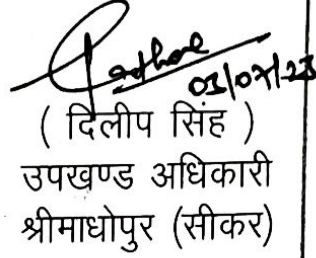 03/07/23
( दिलीप सिंह )
उपखण्ड अधिकारी
श्रीमाधोपुर (सीकर)